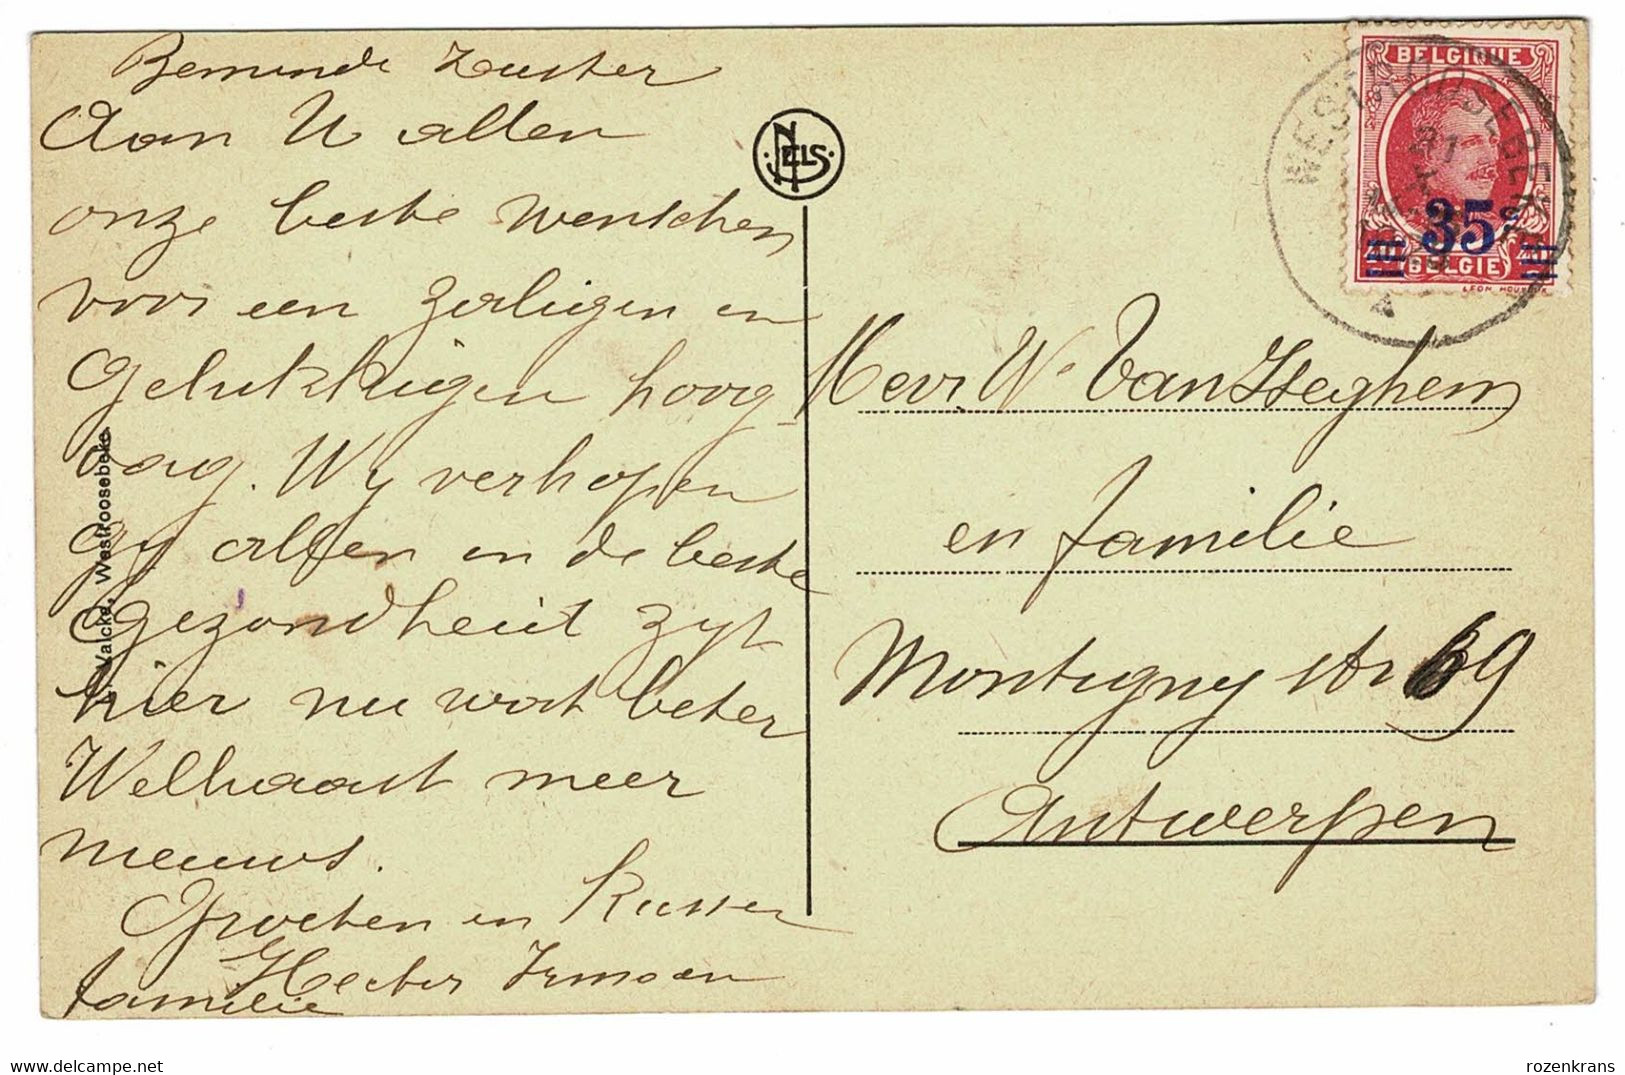 Beminde Zuster
Aan U allen
onze beste wenschen
voor een zaligen en
Gelukkigen hoog-
dag. Wy verhopen
gy allen in de beste
gezondheid zyt
hier nu wat beter
Welhaast meer
nieuws.
Groeten en Kussen
Hector Irma en
familie
NELS
Valcke, Westroosebeke
BELGIQUE
35c
BELGIE
WESTROOSEBEKE
A
Mevr. We Van Iseghem
en familie
Montigny str 69
Antwerpen
rozenkrans